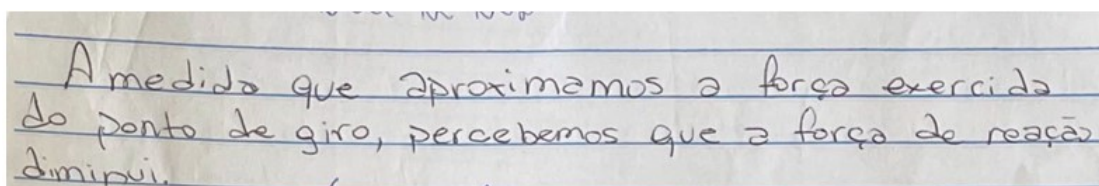 A medida que aproximamos a força exercida
do ponto de giro, percebemos que a força de reação
diminui.